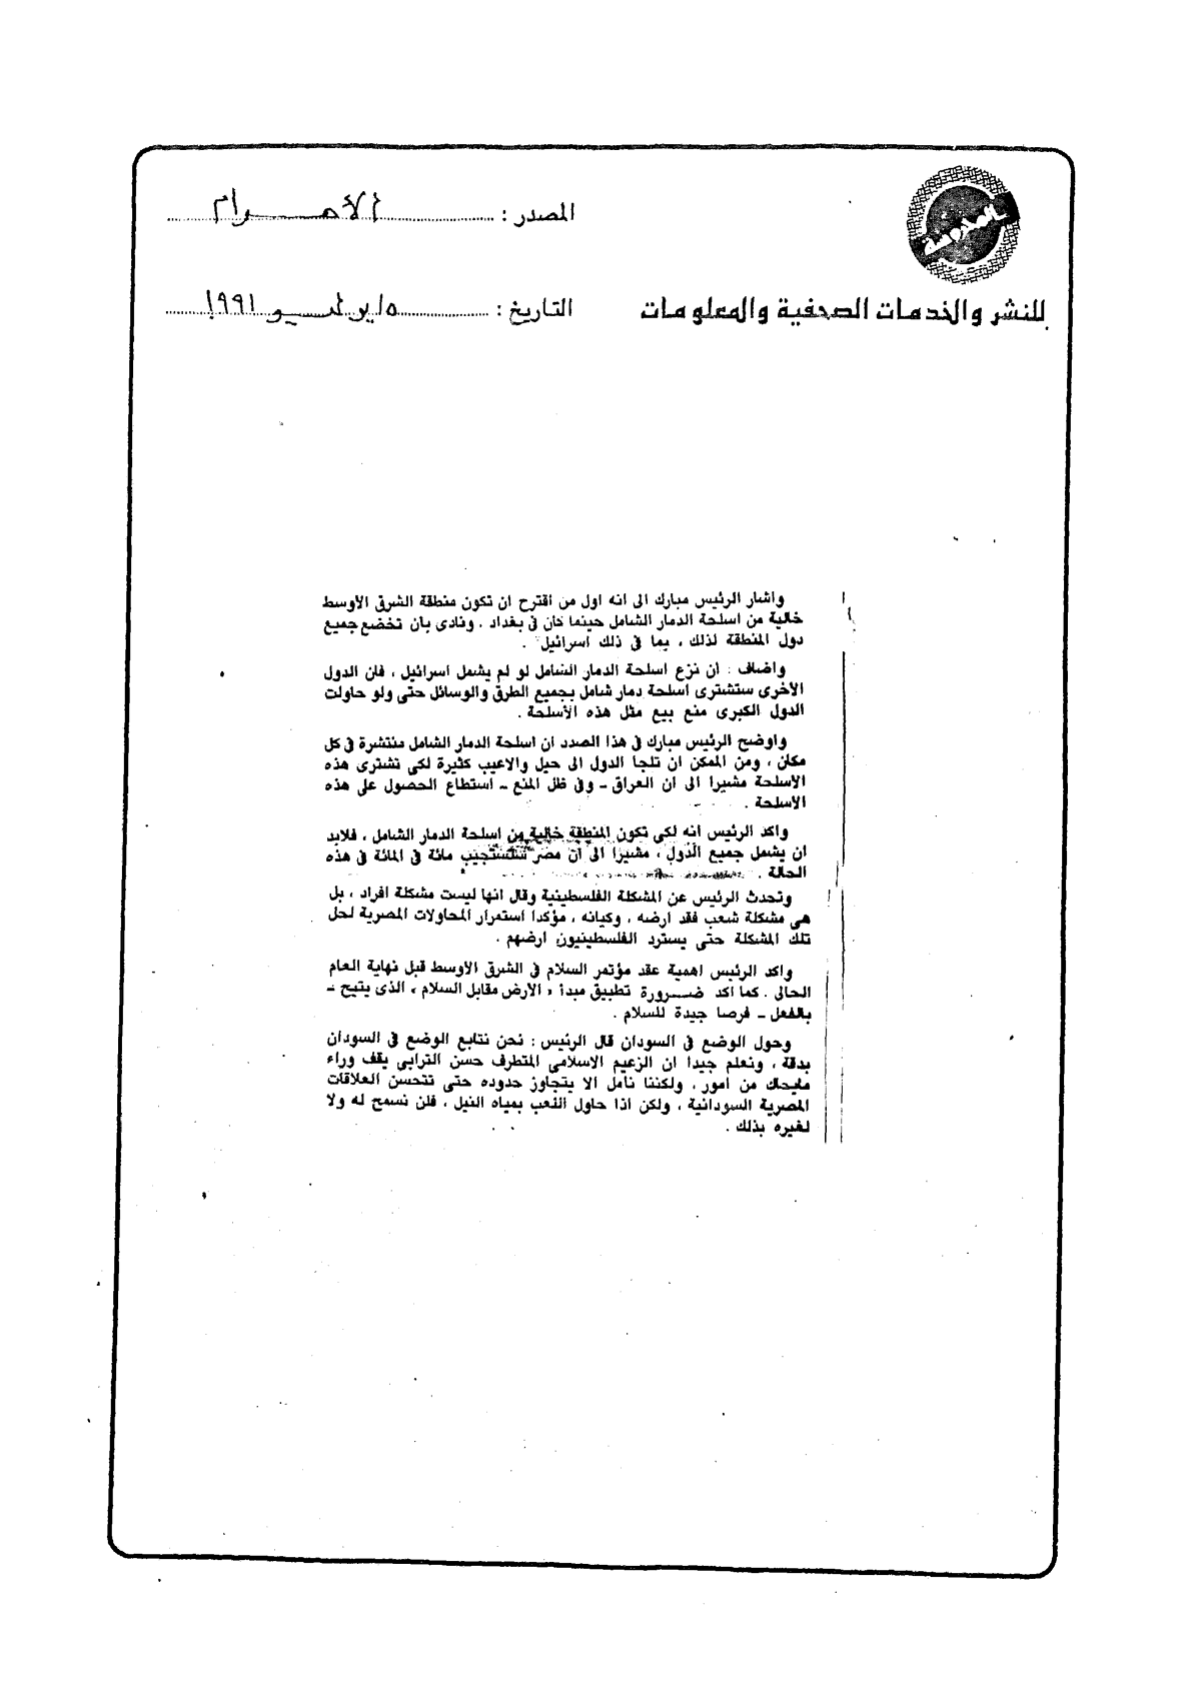 المصدر : الأهرام
للنشر والخدمات الصحفية والمعلومات
التاريخ : ١٥ يوليو ١٩٩١
واشار الرئيس مبارك الى انه اول من اقترح ان تكون منطقة الشرق الأوسط
خالية من اسلحة الدمار الشامل حينما كان فى بغداد . ونادى بان تخضع جميع
دول المنطقة لذلك ، بما فى ذلك اسرائيل .
واضاف : ان نزع اسلحة الدمار الشامل لو لم يشمل اسرائيل ، فان الدول
الأخرى ستشترى اسلحة دمار شامل بجميع الطرق والوسائل حتى ولو حاولت
الدول الكبرى منع بيع مثل هذه الأسلحة .
واوضح الرئيس مبارك فى هذا الصدد ان اسلحة الدمار الشامل منتشرة فى كل
مكان ، ومن الممكن ان تلجا الدول الى حيل والاعيب كثيرة لكى تشترى هذه
الاسلحة مشيرا الى ان العراق - وفى ظل المنع - استطاع الحصول على هذه
الاسلحة .
واكد الرئيس انه لكى تكون المنطقة خالية من اسلحة الدمار الشامل ، فلابد
ان يشمل جميع الدول ، مشيرا الى ان مصر ستستجيب مائة فى المائة فى هذه
الحالة .
وتحدث الرئيس عن المشكلة الفلسطينية وقال انها ليست مشكلة افراد ، بل
هى مشكلة شعب فقد ارضه ، وكيانه ، مؤكدا استمرار المحاولات المصرية لحل
تلك المشكلة حتى يسترد الفلسطينيون ارضهم .
واكد الرئيس اهمية عقد مؤتمر السلام فى الشرق الأوسط قبل نهاية العام
الحالى . كما اكد ضـــرورة تطبيق مبدأ « الارض مقابل السلام » الذى يتيح -
بالفعل - فرصا جيدة للسلام .
وحول الوضع فى السودان قال الرئيس : نحن نتابع الوضع فى السودان
بدقة ، ونعلم جيدا ان الزعيم الاسلامى المتطرف حسن الترابى يقف وراء
مايحاك من امور ، ولكننا نامل الا يتجاوز حدوده حتى تتحسن العلاقات
المصرية السودانية ، ولكن اذا حاول اللعب بمياه النيل ، فلن نسمح له ولا
لغيره بذلك .